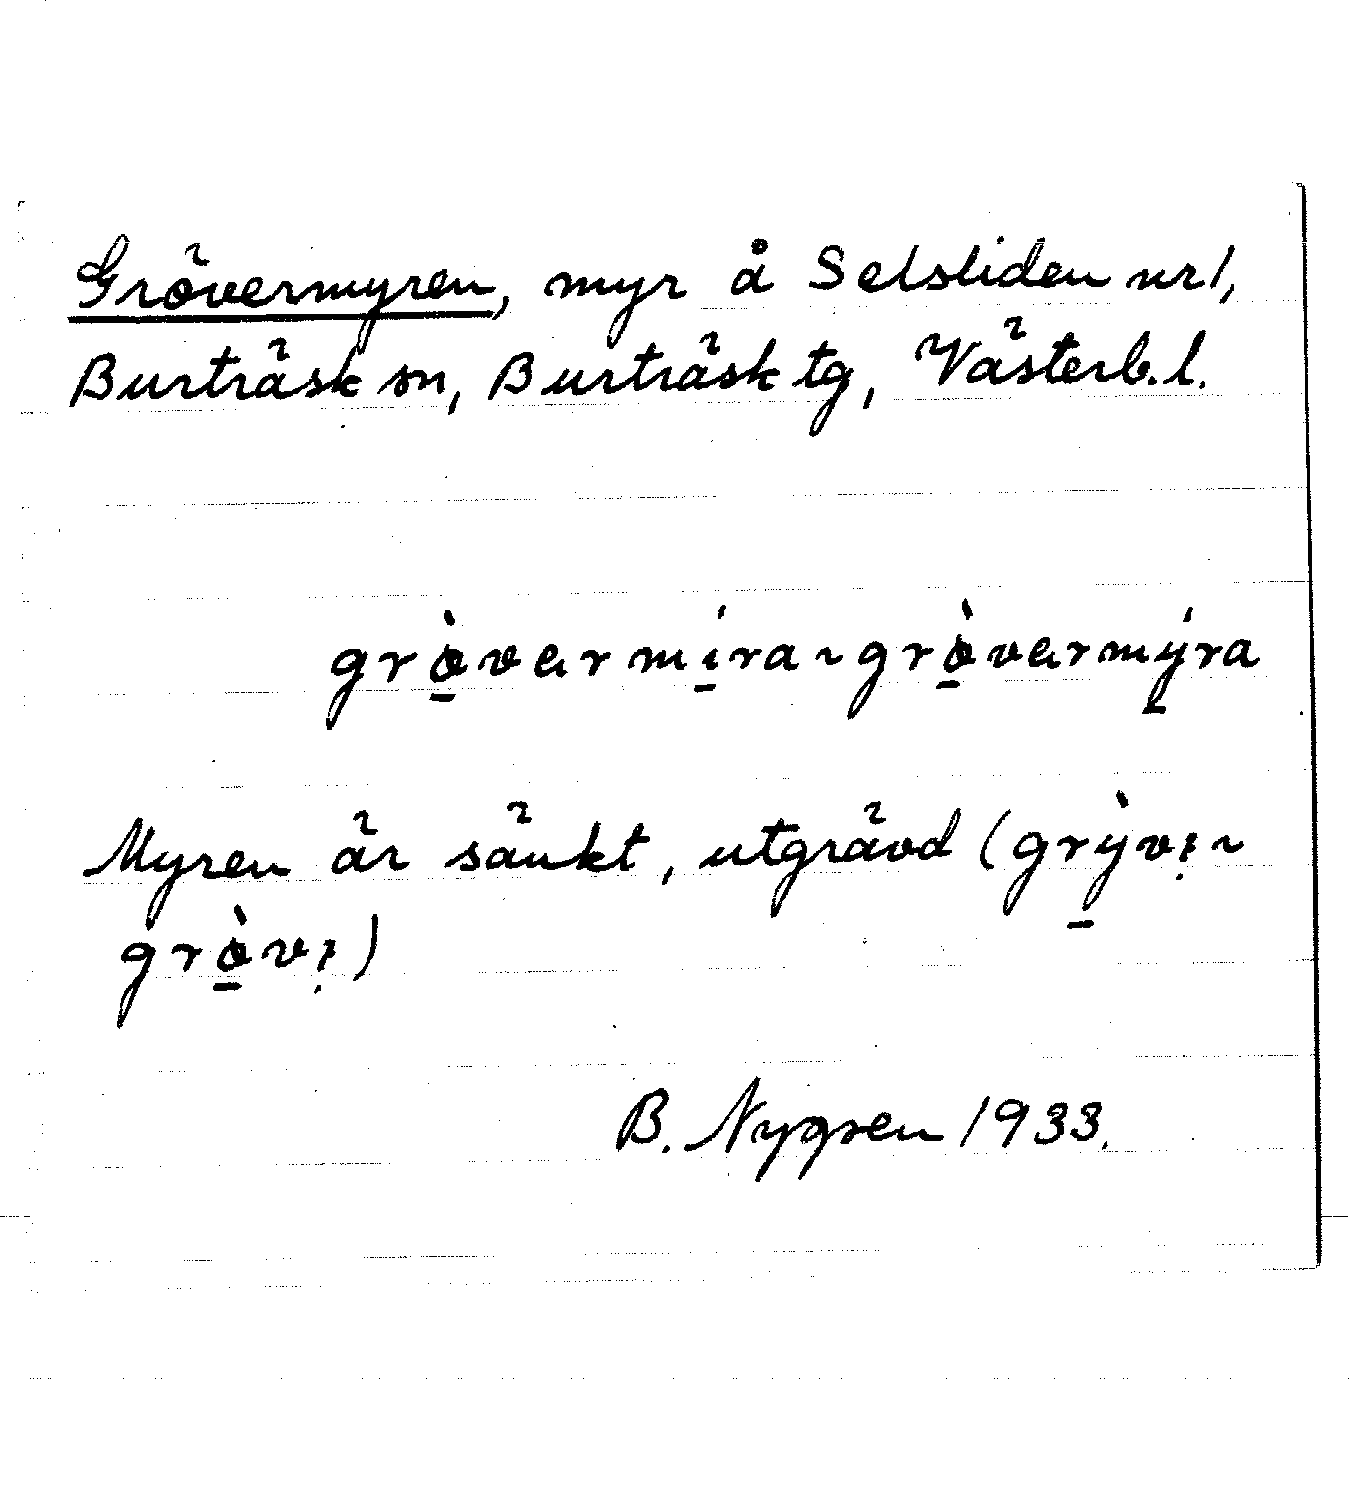 Grövermyren, myr å Selsliden nr 1,
Burträsk sn, Burträsk tg, Västerb. l.
grø̱̀vermí̱ra ~ grø̱̀vermý̱ra
Myren är sänkt, utgrävd (grỳ̱vı̣ ~
grø̱̀vı̣)
B. Nygren 1933.